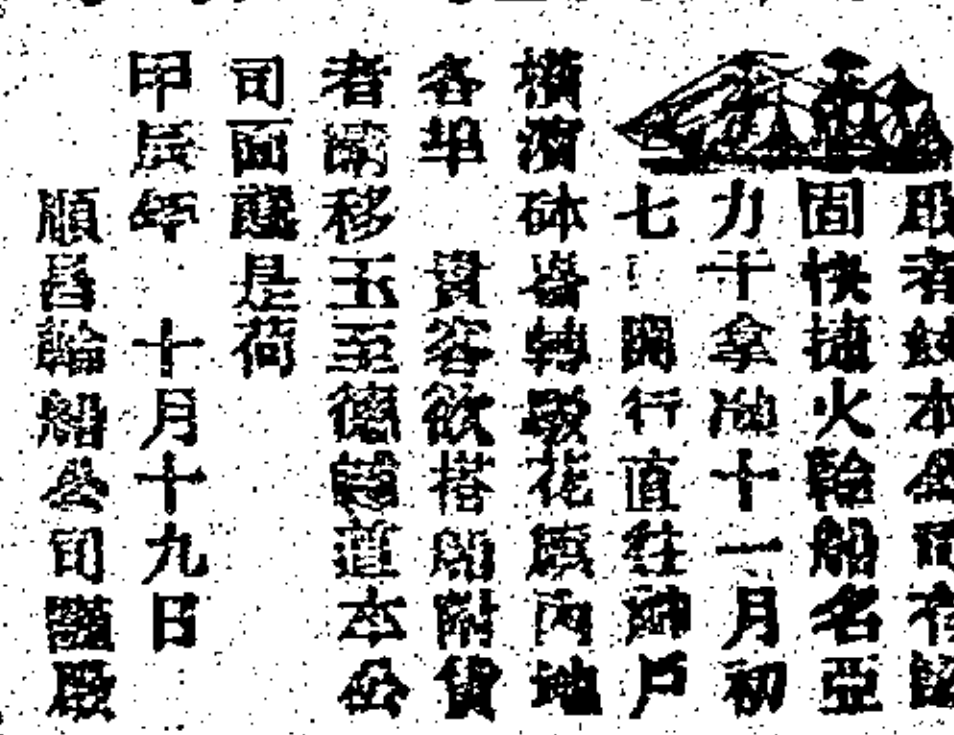 啟者茲本公司有堅
固快捷火輪船名亞
力干拿准十一月初
七 開行直往神戶
橫濱砵崙轉駁花旗內地
各埠 貴客欲搭船附貨
者請移玉至德道本公
司面議是荷
甲辰年 十月十九日
順昌輪船公司謹啟